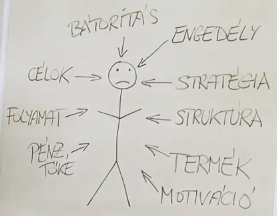 BÁTORÍTÁS
ENGEDÉLY
CÉLOK
STRATÉGIA
FOLYAMAT
STRUKTÚRA
PÉNZ,
TŐKE
TERMÉK
MOTIVÁCIÓ